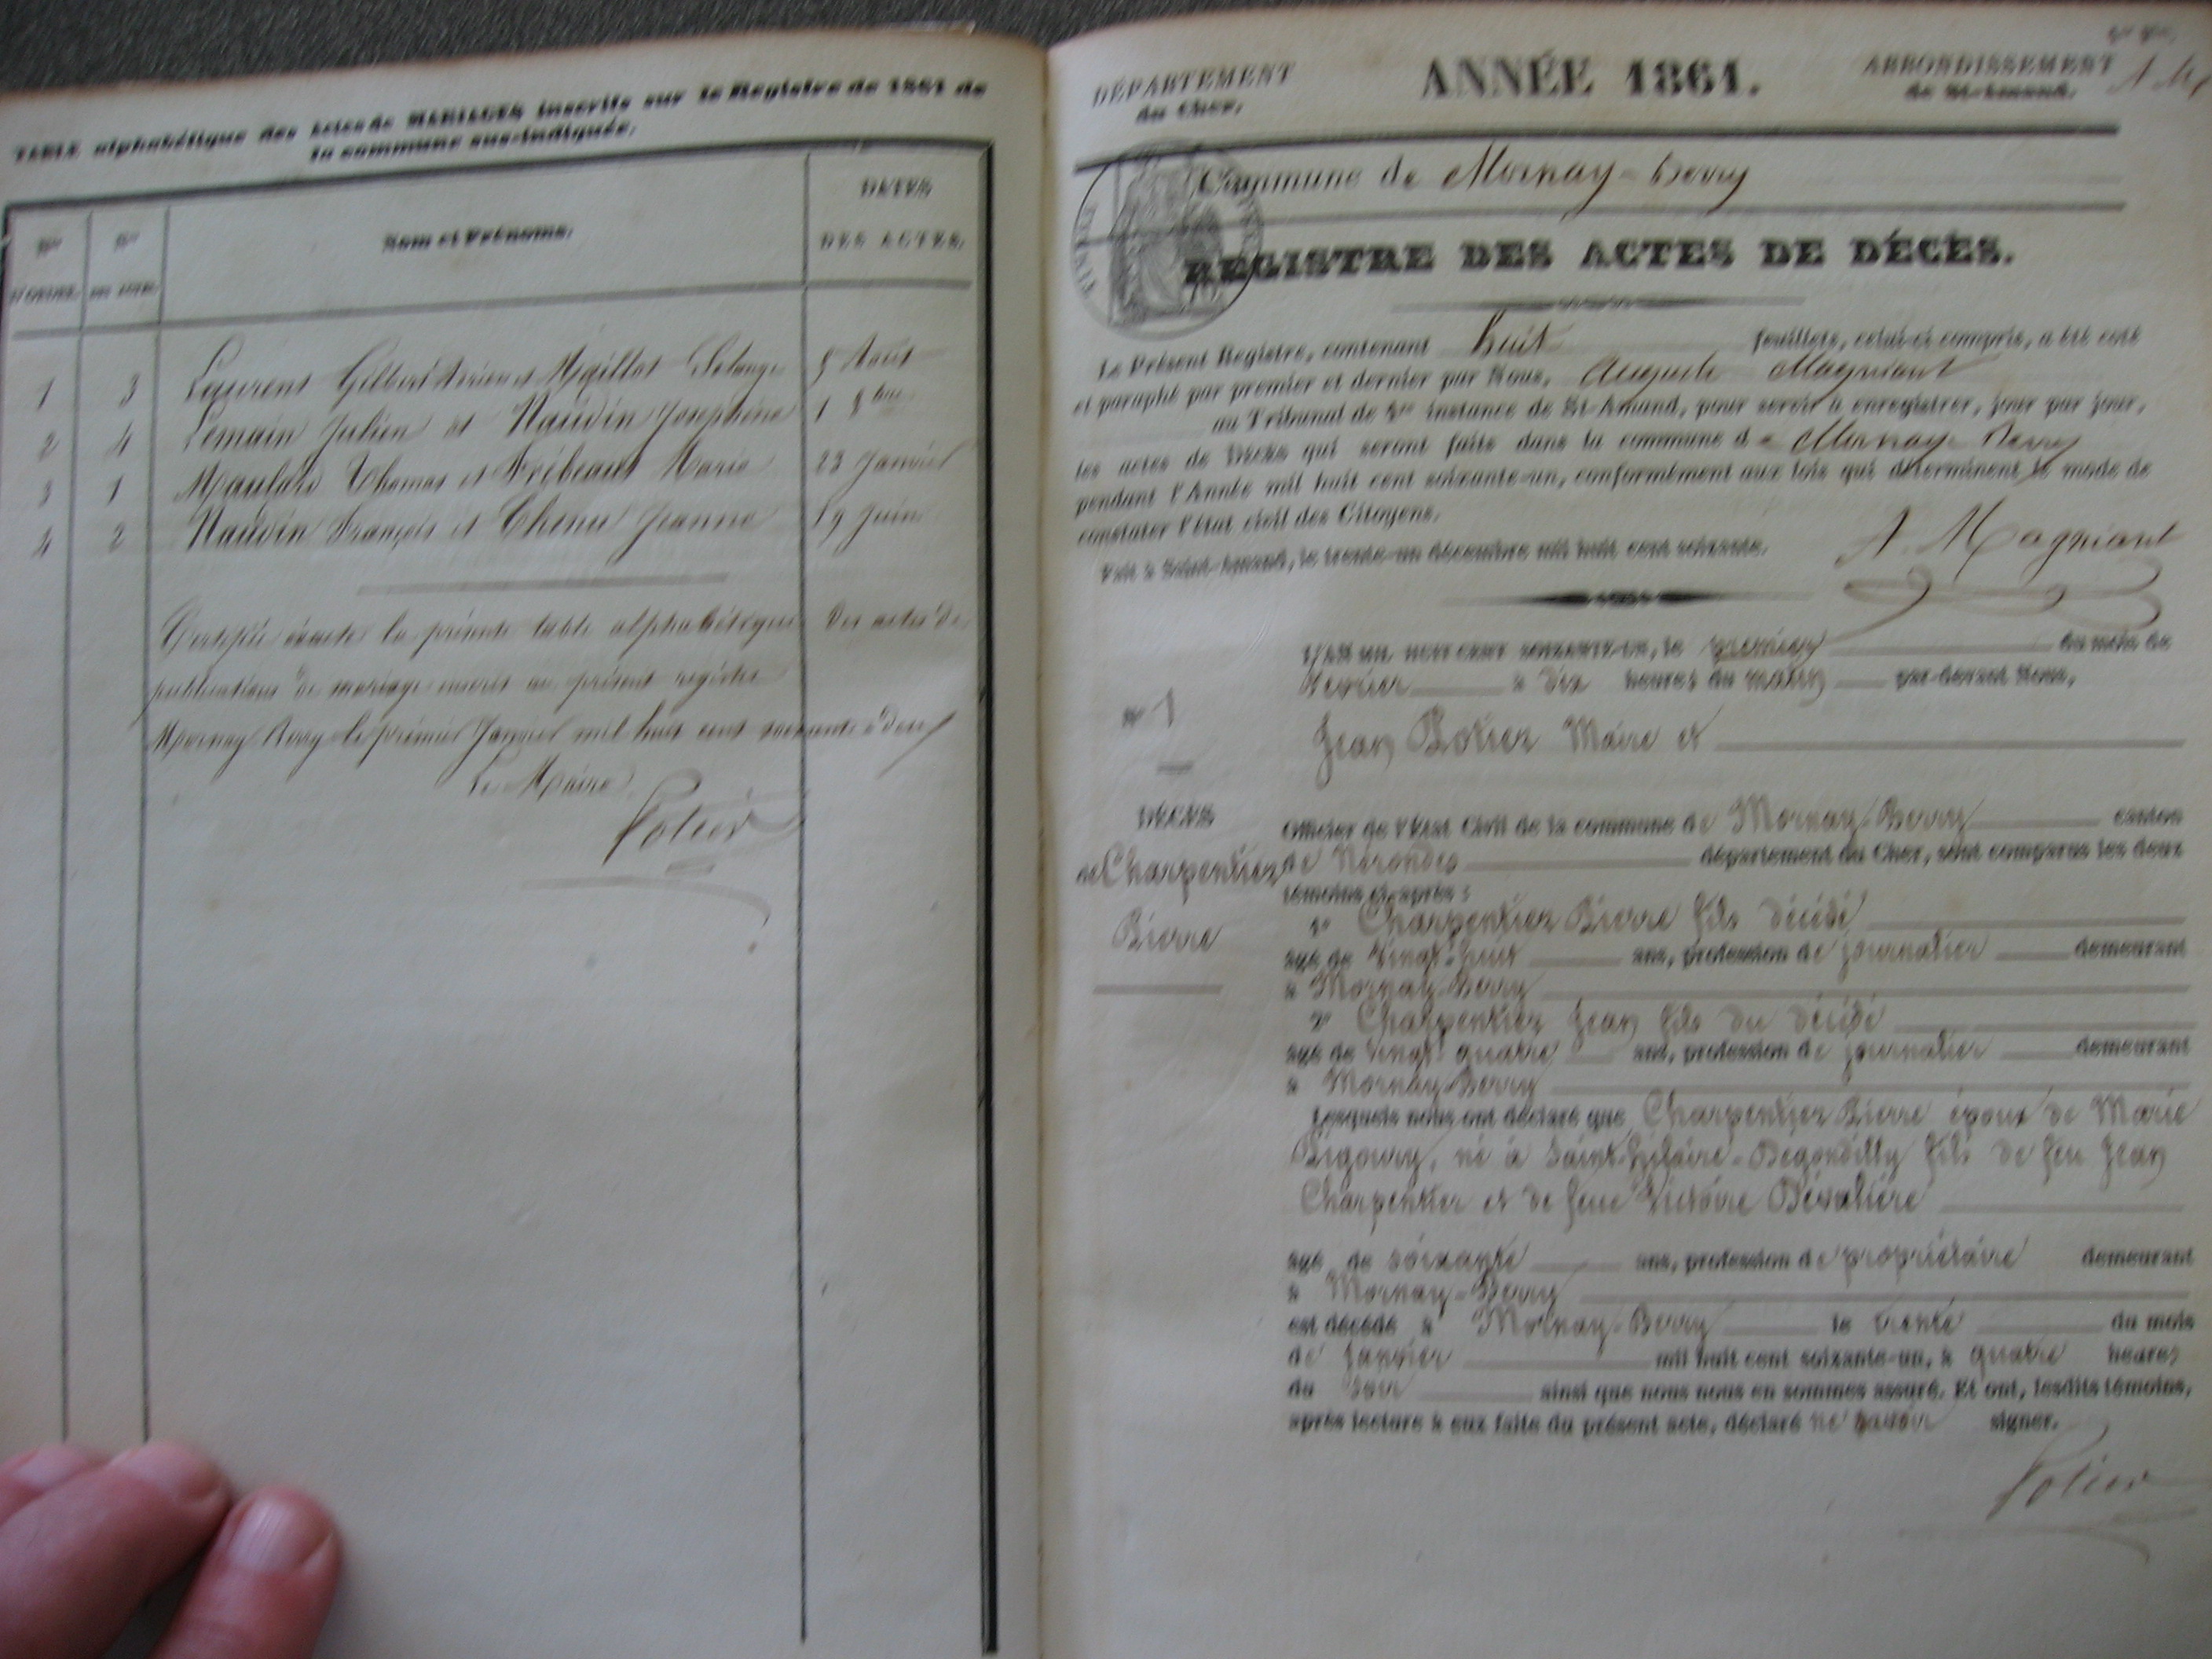 TABLE alphabétique des actes de MARIAGES inscrits sur le Registre de 1861 de
la commune sus-indiquée.
Nos
D'ORDRE.
Nos
Nom et Prénoms.
DATES
DES ACTES.
1 3 Laurent Gilbert et Maillot Solange 5 Août
2 4 Lemain Julien et Naudin Joséphine 1 8bre
3 1 Thomas et Marie 23 Janvier
4 2 Naudin François et Chenu Jeanne 19 Juin
Certifiée exacte la présente table alphabétique des actes de
publications de mariage inscrits au présent registre
Mornay Berry le premier Janvier mil huit cent soixante deux
Le Maire
Potier
DÉPARTEMENT
du Cher.
ANNÉE 1861.
ARRONDISSEMENT
de St-Amand.
Commune de Mornay-berry
REGISTRE DES ACTES DE DÉCÈS.
Le Présent Registre, contenant huit feuillets, celui-ci compris, a été coté
et paraphé par premier et dernier par Nous, Auguste Magniant
au Tribunal de 1re instance de St-Amand, pour servir à enregistrer, jour par jour,
les actes de Décès qui seront faits dans la commune de Mornay Berry
pendant l'Année mil huit cent soixante-un, conformément aux lois qui déterminent le mode de
constater l'état civil des Citoyens.
Fait à Saint-Amand, le trente-un décembre mil huit cent soixante.
A. Magniant
L'AN MIL HUIT CENT SOIXANTE-UN, le premier du mois de
février à dix heures du matin par-devant Nous,
No 1
Jean Potier Maire et
DÉCÈS
Officier de l'État Civil de la commune de Mornay-Berry canton
de Charpentier
de Nérondes département du Cher, sont comparus les deux
témoins ci-après :
Pierre
1° Charpentier Pierre fils décédé
âgé de vingt-huit ans, profession de journalier demeurant
à Mornay-Berry
2° Charpentier Jean fils du décédé
âgé de vingt quatre ans, profession de journalier demeurant
à Mornay-Berry
Lesquels nous ont déclaré que Charpentier Pierre époux de Marie
Pigoury, né à Saint-hilaire-Degondilly fils de feu Jean
Charpentier et de feue Victoire Dévalière
âgé de soixante ans, profession de propriétaire demeurant
à Mornay-Berry
est décédé à Mornay-Berry le trente du mois
de janvier mil huit cent soixante-un, à quatre heures
du soir ainsi que nous nous en sommes assuré. Et ont, lesdits témoins,
après lecture à eux faite du présent acte, déclaré ne savoir signer.
Potier